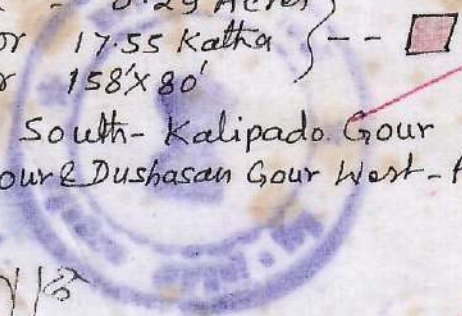 - 0.29 Acres
or 17.55 Katha
158'X80'
South- Kalipado Gour
our & Dushasan Gour West-